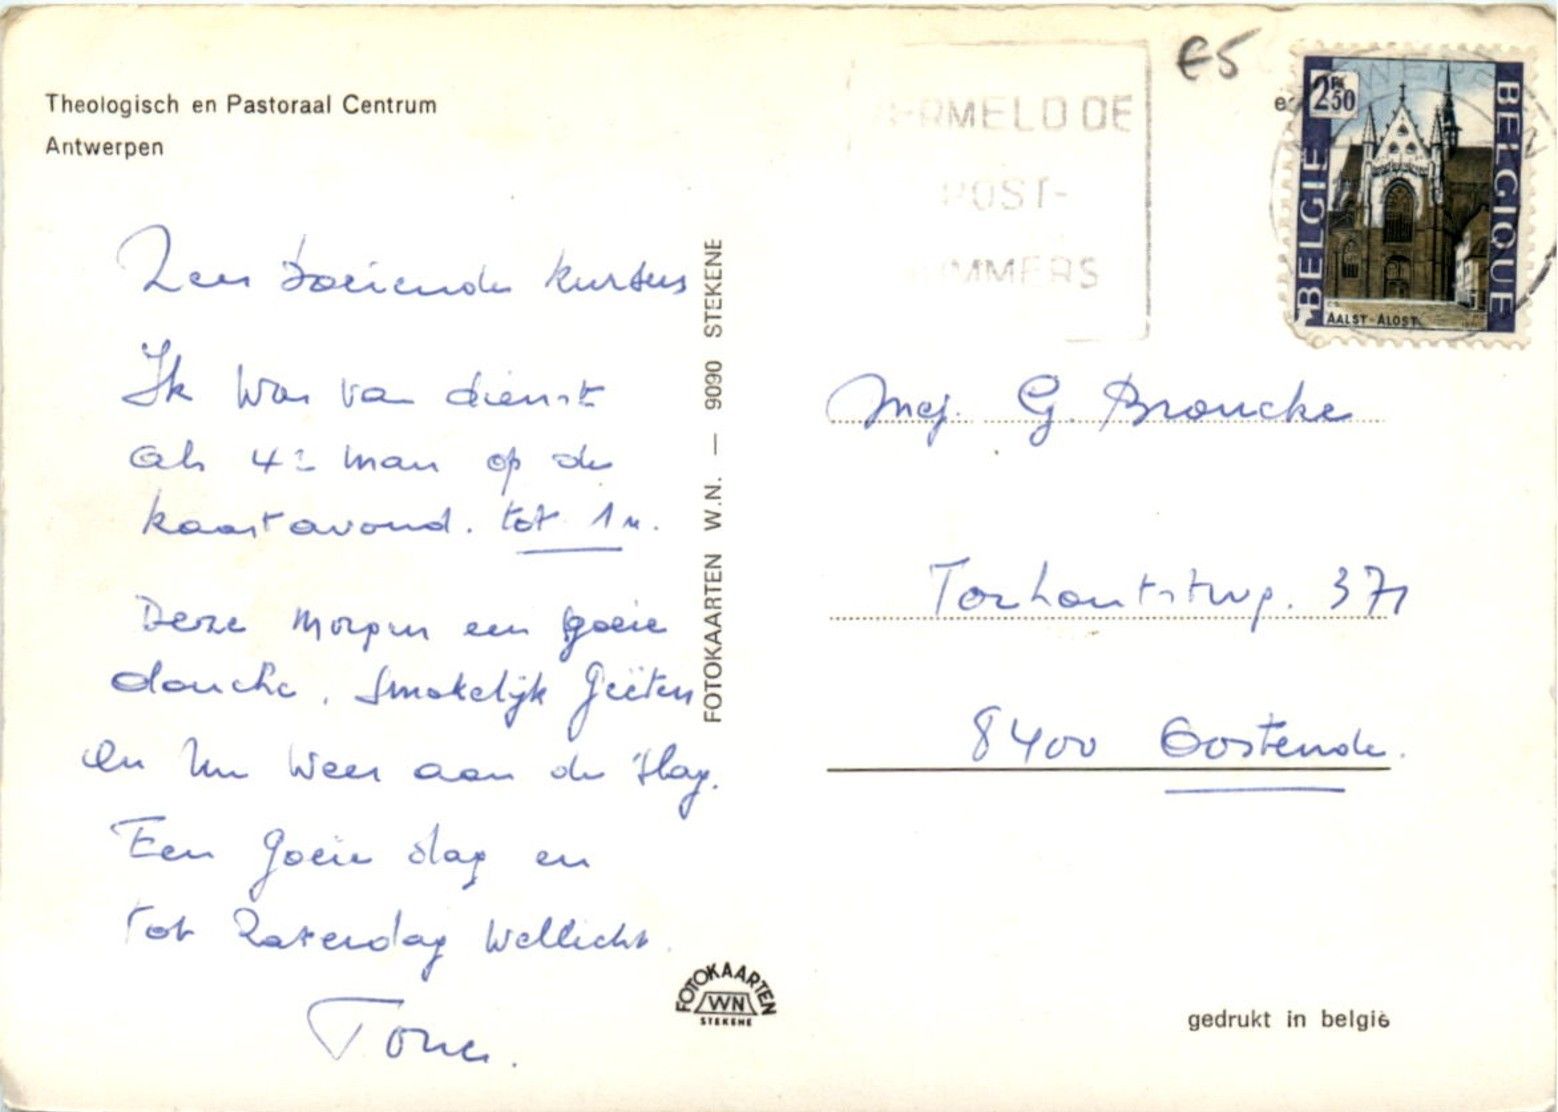 Theologisch en Pastoraal Centrum
Antwerpen
Zeer boeiende kursus
Ik was van dienst
als 4e man op de
kaartavond. tot 1 u.
Deze morgen een goeie
douche. Smakelijk geëten
en nu weer aan de slag.
Een goeie dag en
tot zaterdag wellicht.
FOTOKAARTEN W.N. — 9090 STEKENE
FOTOKAARTEN
WN
STEKENE
ERMELD DE
POST-
MMERS
€5
2F50
BELGIE
BELGIQUE
AALST-ALOST
Mej. G. Broucke
Torhoutstwg. 371
8400 Oostende.
gedrukt in belgië